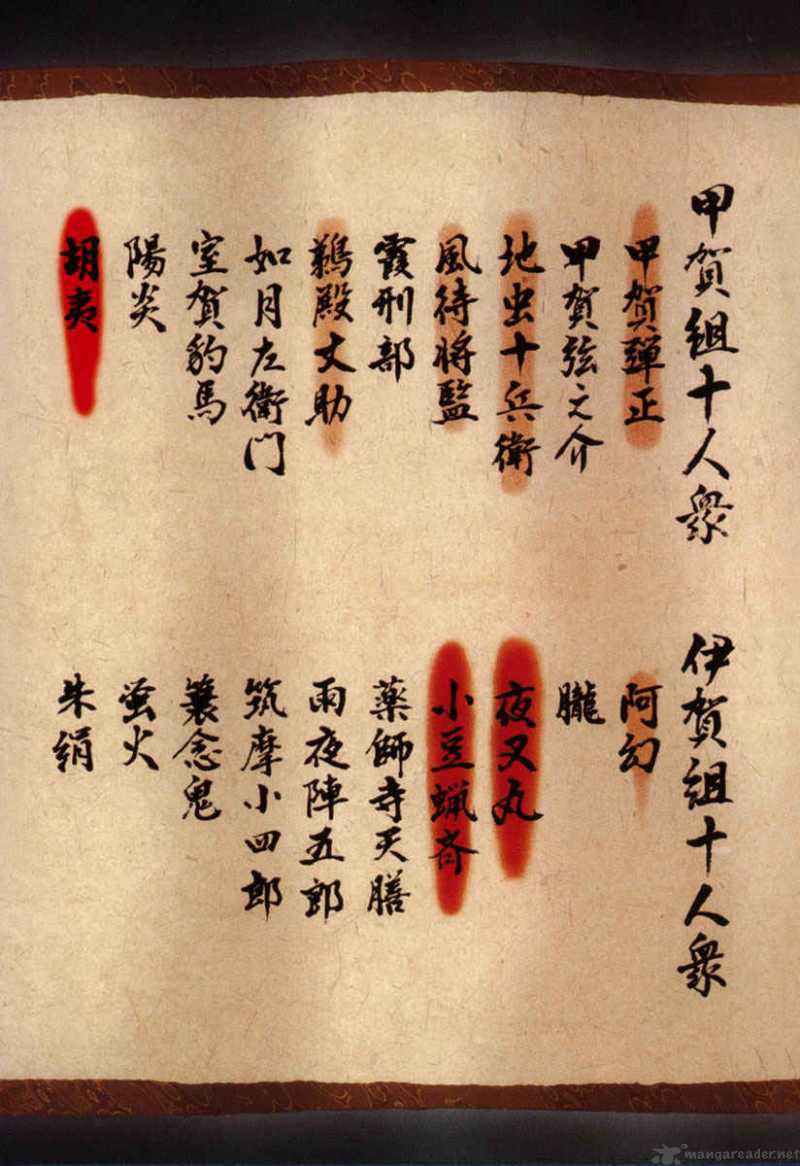 甲賀組十人衆
甲賀弾正
甲賀弦之介
地虫十兵衛
風待将監
霞刑部
鵜殿丈助
如月左衛門
室賀豹馬
陽炎
胡夷
伊賀組十人衆
阿幻
朧
夜叉丸
小豆蝋斉
薬師寺天膳
雨夜陣五郎
筑摩小四郎
簑念鬼
蛍火
朱絹
mangareader.net